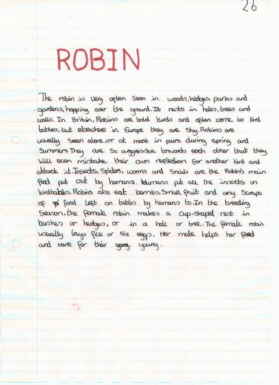 26
ROBIN
The robin is very often seen in woods, hedges parks and
gardens, hopping over the ground. It nests in holes, trees and
walls. In Britain, Robins are bold birds and often come to bird
tables, but elsewhere in Europe they are shy. Robins are
usually seen alone or at most in pairs during spring and
Summer. They are so aggressive towards each other that they
will even mistake their own reflection for another bird and
attack it. Insects, Spiders, worms and Snails are the Robin's main
food put out by humans. Humans put out the insects on
birdtables. Robins also eat berries, Small fruit and any Scraps
of food left on tables by humans to. In the breeding
Season, the female robin makes a cup-shaped nest in
bushes or hedges, or in a hole or tree. The female robin
usually lays five or six eggs. Her mate helps her feed
and care for their young.